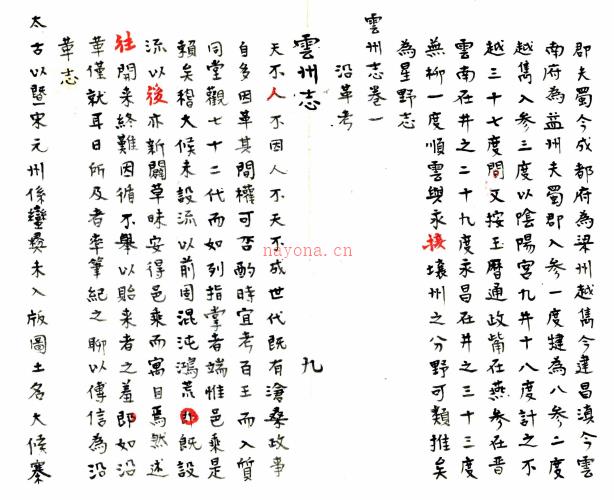 郡夫蜀今成都府為梁州越雋今建昌滇今雲
南府為益州夫蜀郡入參一度犍為八參二度
越雋入參三度以陰陽宮九井十八度計之不
越三十七度間又按玉曆通政觜在燕參在晋
雲南在井之二十九度永昌在井之三十三度
無柳一度順雲與永接壤州之分野可類推矣
為星野志
雲州志卷一
沿革考
雲州志 九
天不人不因人不天不成世代既有滄桑政事
自多因革其間權可否酌時宜考百王而入質
同堂觀七十二代而如列指掌者端惟邑乘是
賴矣稽大候未設流以前固混沌鴻荒即既設
流以後亦新闢草昧安得邑乘而寓目焉然述
往開来終難因循不舉以貽来者之羞即如沿
革僅就耳目所及者率筆紀之聊以傳信為沿
革志
太古以暨宋元州係蠻彝未入版圖土名大候寨
nayona.cn